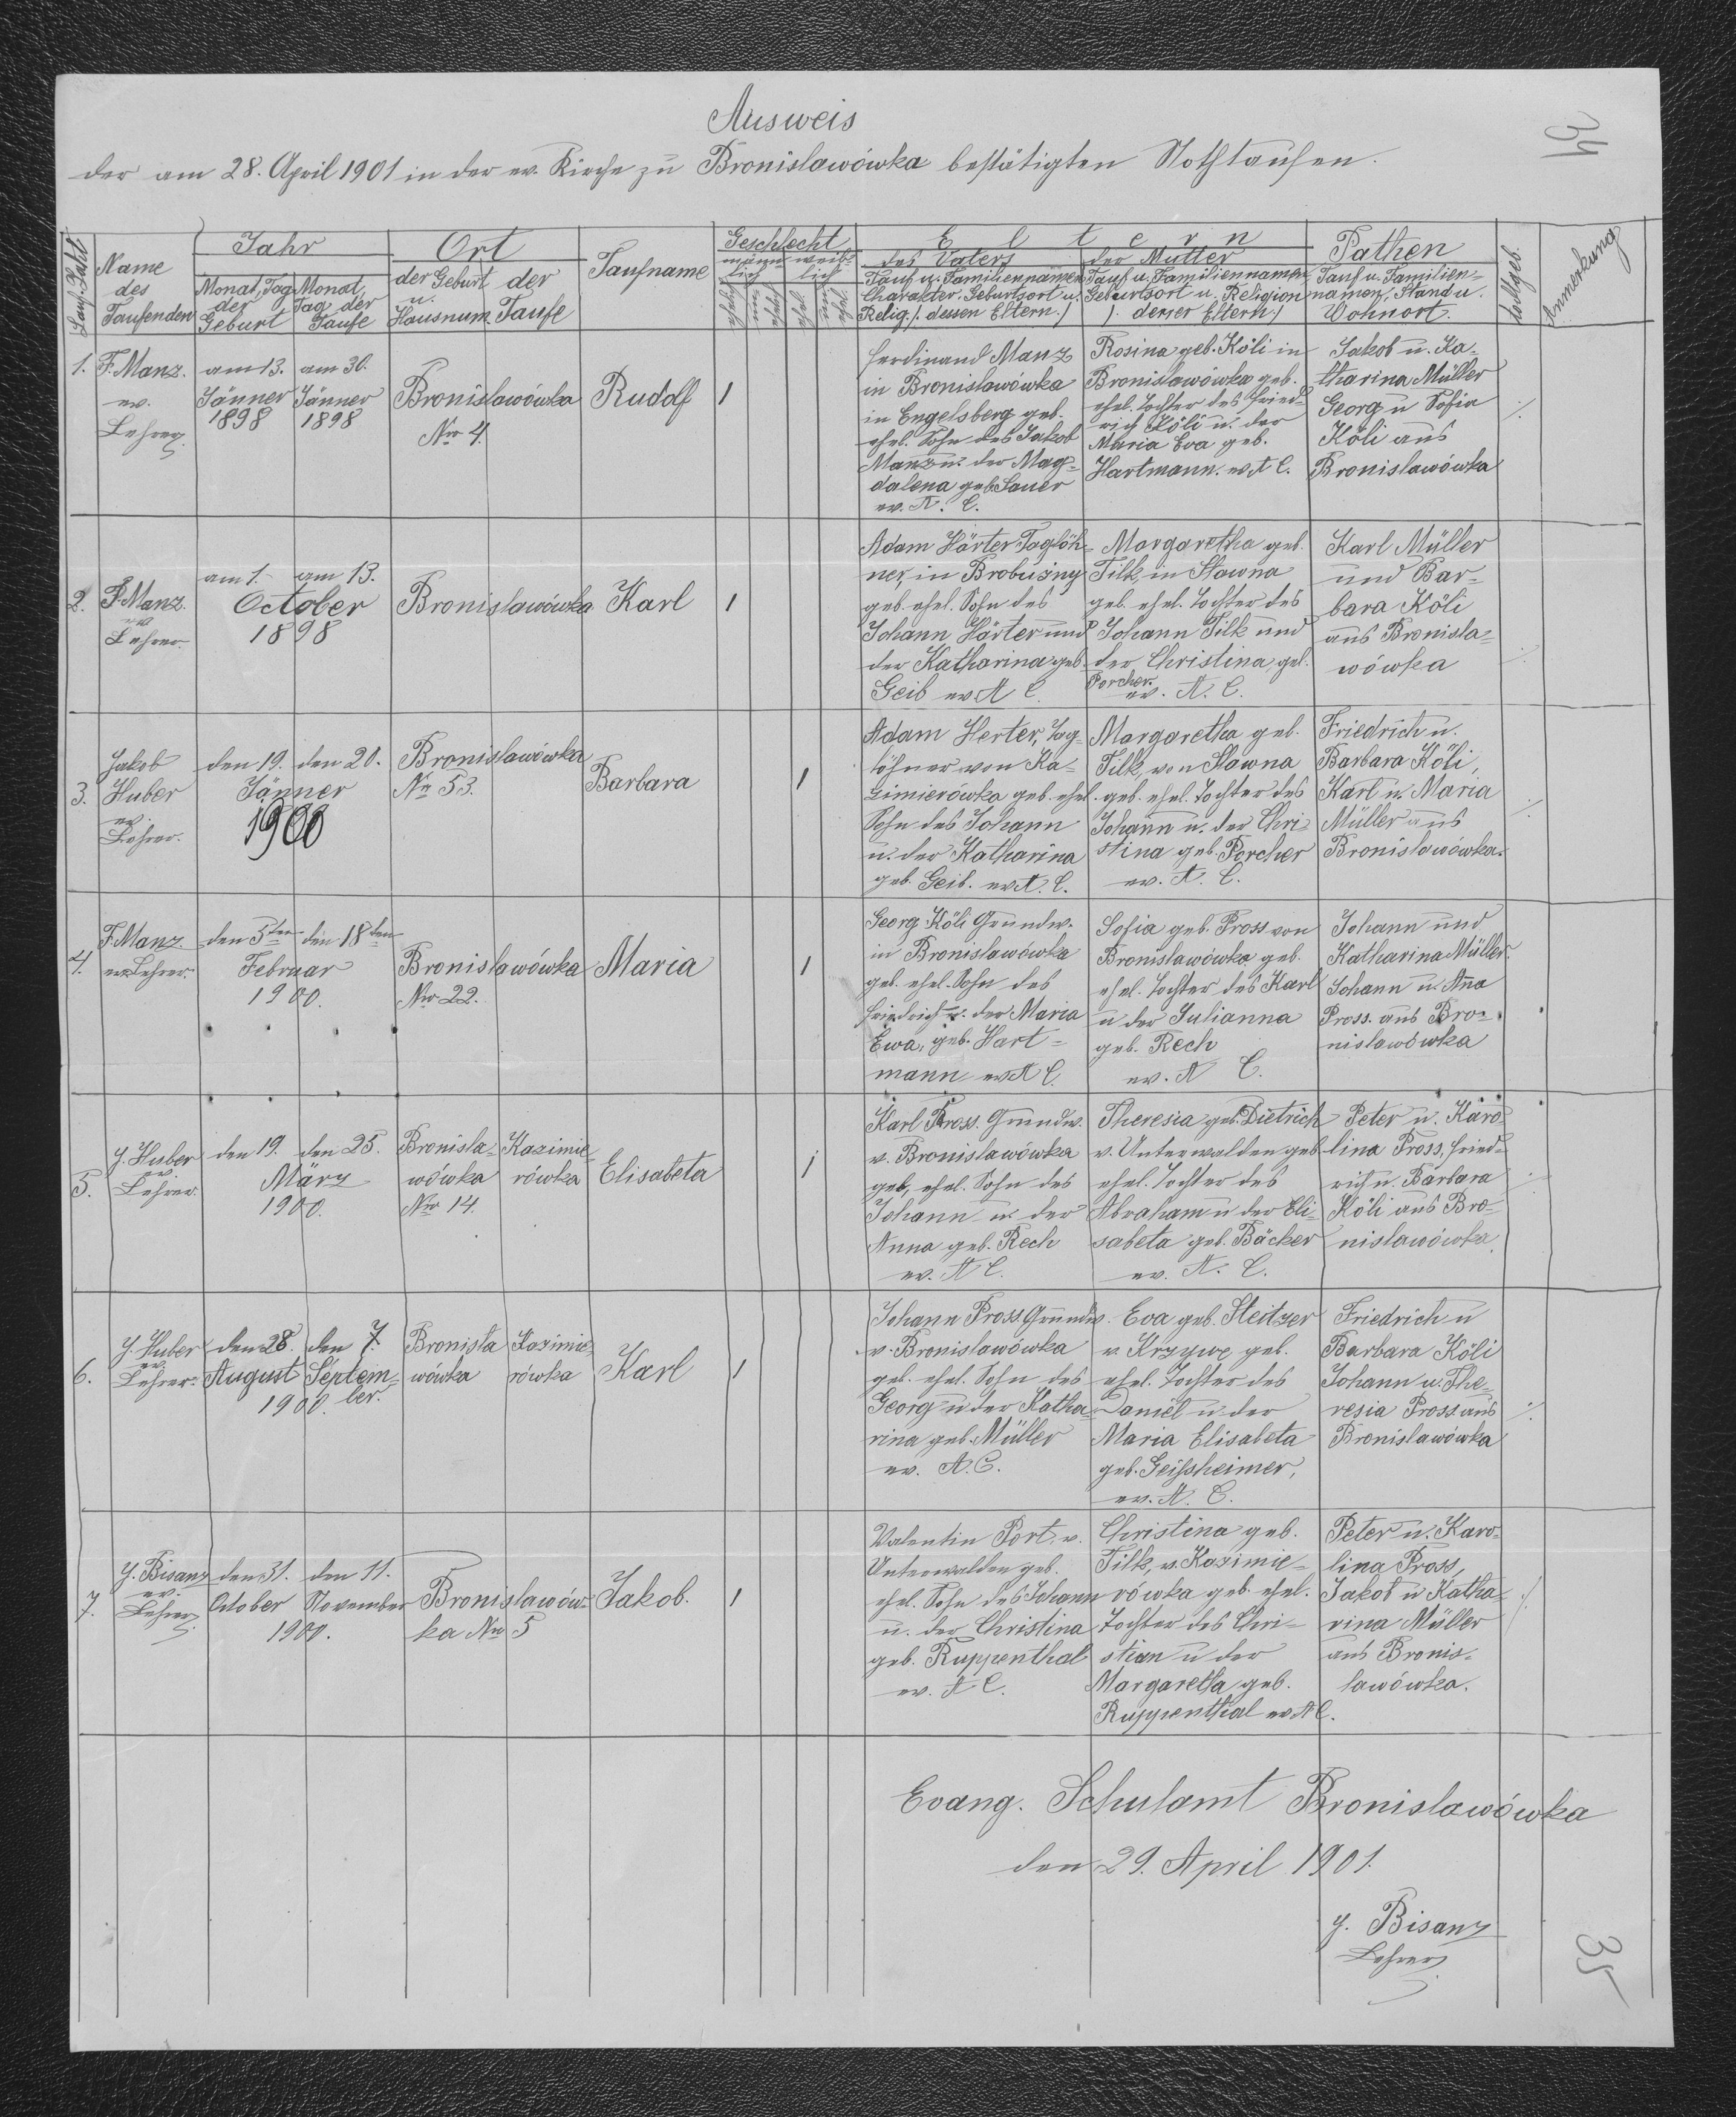 Ausweis
34
der am 28. April 1901 in der ev. Kirche zu Bronislawówka bestätigten Nothtaufen.
Lauf. Zahl
Name
des
Taufenden
Jahr
Monat, Tag
der
Geburt
Monat,
Tag der
Taufe
Ort
der Geburt
u.
Hausnum.
der
Taufe
Taufname
Geschlecht
männ-
lich
weib-
lich
ehel.
un
ehel.
ehel.
un
ehel.
Eltern
des Vaters
Tauf u. Familiennamen
Charakter, Geburtsort u.
Relig. /. dessen Eltern./
der Mutter
Tauf u. Familiennamen
Geburtsort u. Religion
/. derer Eltern./
Pathen
Tauf u. Familien-
namen, Stand u.
Wohnort.
Anmerkung
1.
F. Manz.
ev.
Lehrer.
am 13.
Jänner
1898
am 30.
Jänner
1898
Bronislawówka
Nro 4.
Rudolf
1
Ferdinand Manz
in Bronislawówka
in Engelsberg geb.
ehel. Sohn des Jakob
Manz u. der Mag-
dalena geb. Sauer
ev. A. C.
Rosina geb. Köli in
Bronislawówka geb.
ehel. Tochter des Fried-
rich Köli u. der
Maria Eva geb.
Hartmann. ev. A C.
Jakob u. Ka-
tharina Müller
Georg u Sofia
Köli aus
Bronislawówka
2.
F. Manz.
ev
Lehrer.
am 1. am 13.
October
1898
Bronislawówka
Karl
1
Adam Härter Taglöh-
ner, in Brobuzny
geb. ehel. Sohn des
Johann Härter und
der Katharina geb.
Geib ev A C.
Margaretha geb.
Filk, in Slawna
geb. ehel. Tochter des
Johann Filk und
der Christina, geb.
Porcher.
ev. A. C.
Karl Müller
und Bar-
bara Köli
aus Bronisla-
wówka
3.
Jakob
Huber
ev.
Lehrer.
den 19. den 20.
Jänner
1900
Bronislawówka
Nro 53.
Barbara
1
Adam Herter, Tag-
löhner von Ka-
zimierówka geb. ehel.
Sohn des Johann
u. der Katharina
geb. Geib. ev A. C.
Margaretha geb.
Filk, von Slawna
geb. ehel. Tochter des
Johann u. der Chri-
stina geb. Porcher
ev. A. C.
Friedrich u.
Barbara Köli,
Karl u. Maria
Müller aus
Bronislawówka.
4.
F. Manz
ev. Lehrer.
den 5ten den 18den
Februar
1900.
Bronislawówka
Nro 22.
Maria
1
Georg Köli Grundw.
in Bronislawówka
geb. ehel. Sohn des
Friedrich u. der Maria
Ewa, geb. Hart-
mann ev A C.
Sofia geb. Pross von
Bronislawówka geb.
ehel. Tochter des Karl
u der Julianna
geb. Rech
ev. A C.
Johann und
Katharina Müller.
Johann u. Anna
Pross. aus Bro-
nislawówka
5.
J. Huber
ev.
Lehrer.
den 19. den 25.
März
1900.
Bronisla-
wówka
Nro 14.
Kazimie-
rówka
Elisabeta
1
Karl Pross. Grundw.
v. Bronislawówka
geb. ehel. Sohn des
Johann u. der
Anna geb. Rech
ev. A C.
Theresia geb. Dietrich
v. Unterwalden geb
ehel. Tochter des
Abraham u der Eli-
sabeta geb. Bäcker
ev. A. C.
Peter u. Karo-
lina Pross, Fried-
rich u. Barbara
Köli aus Bro-
nislawówka.
6.
J. Huber
ev.
Lehrer.
den 28.
August
1900.
den 7.
Septem-
ber.
Bronisla
wówka
Kazimie-
rówka
Karl
1
Johann Pross. Grundw.
v. Bronislawówka
geb. ehel. Sohn des
Georg u der Katha-
rina geb. Müller
ev. A. C.
Eva geb. Steitzer
v. Krzywe geb.
ehel. Tochter des
Daniel u. der
Maria Elisabeta
geb. Geissheimer,
ev. A. C.
Friedrich u
Barbara Köli
Johann u. The-
resia Pross. aus
Bronislawówka
7.
J. Bisanz
ev.
Lehrer
den 31.
October
1900.
den 11.
November
Bronislawów-
ka Nro 5
Jakob.
1
Valentin Port, v.
Unterwalden geb.
ehel. Sohn des Johann
u. der Christina
geb. Ruppenthal
ev. A C.
Christina geb.
Filk, v. Kazimie-
rówka geb. ehel.
Tochter des Chri-
stian u der
Margaretha geb.
Ruppenthal ev A C.
Peter u. Karo-
lina Pross,
Jakob u Katha-
rina Müller
aus Bronis-
lawówka.
Evang. Schulamt Bronislawówka
den 29. April 1901.
J. Bisanz
Lehrer
35